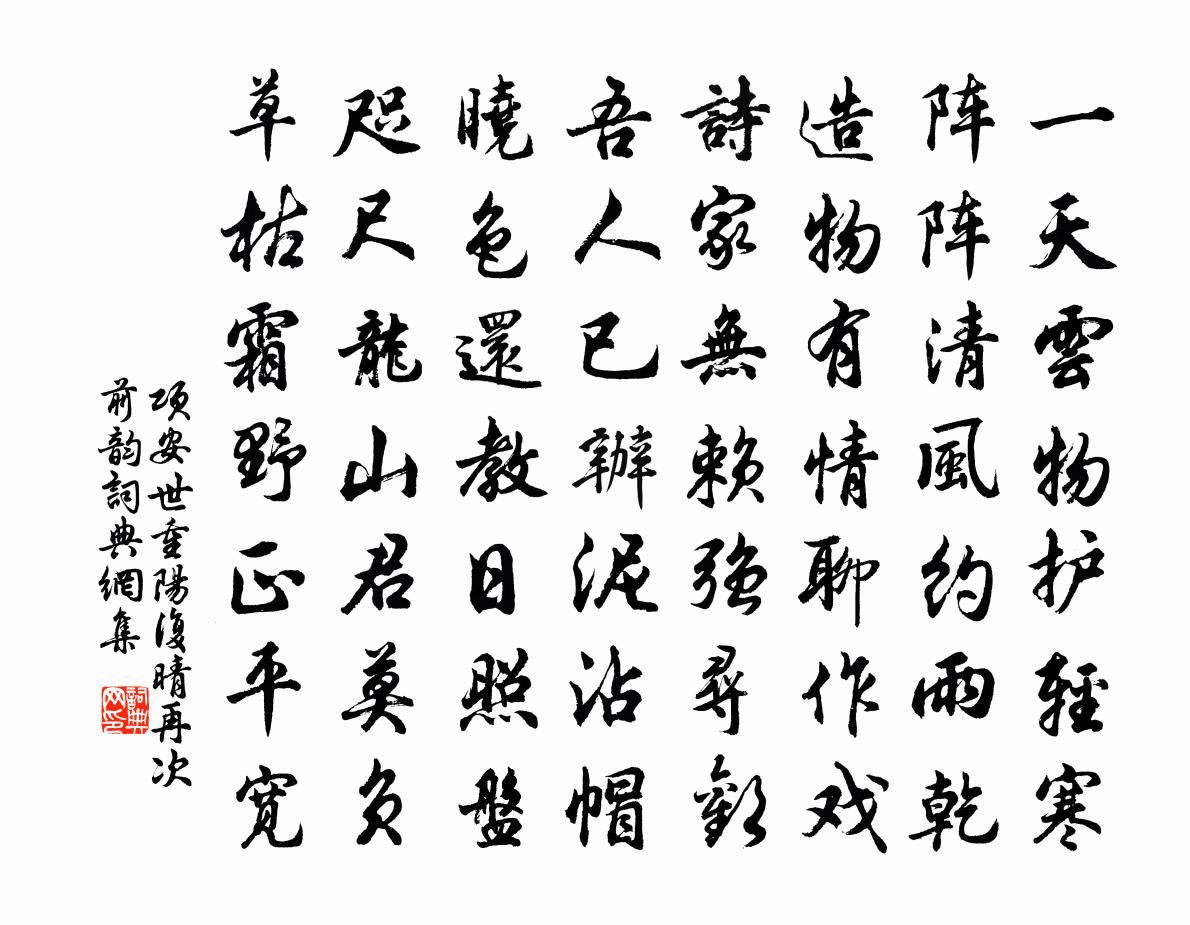 一天雲物护輕寒
阵阵清風约雨乾
造物有情聊作戏
詩家無赖强尋歡
吾人已辦泥沾帽
曉色還教日照盤
咫尺龍山君莫负
草枯霜野正平寛
项安世重陽復晴再次
前韵詞典網集
詞典网印